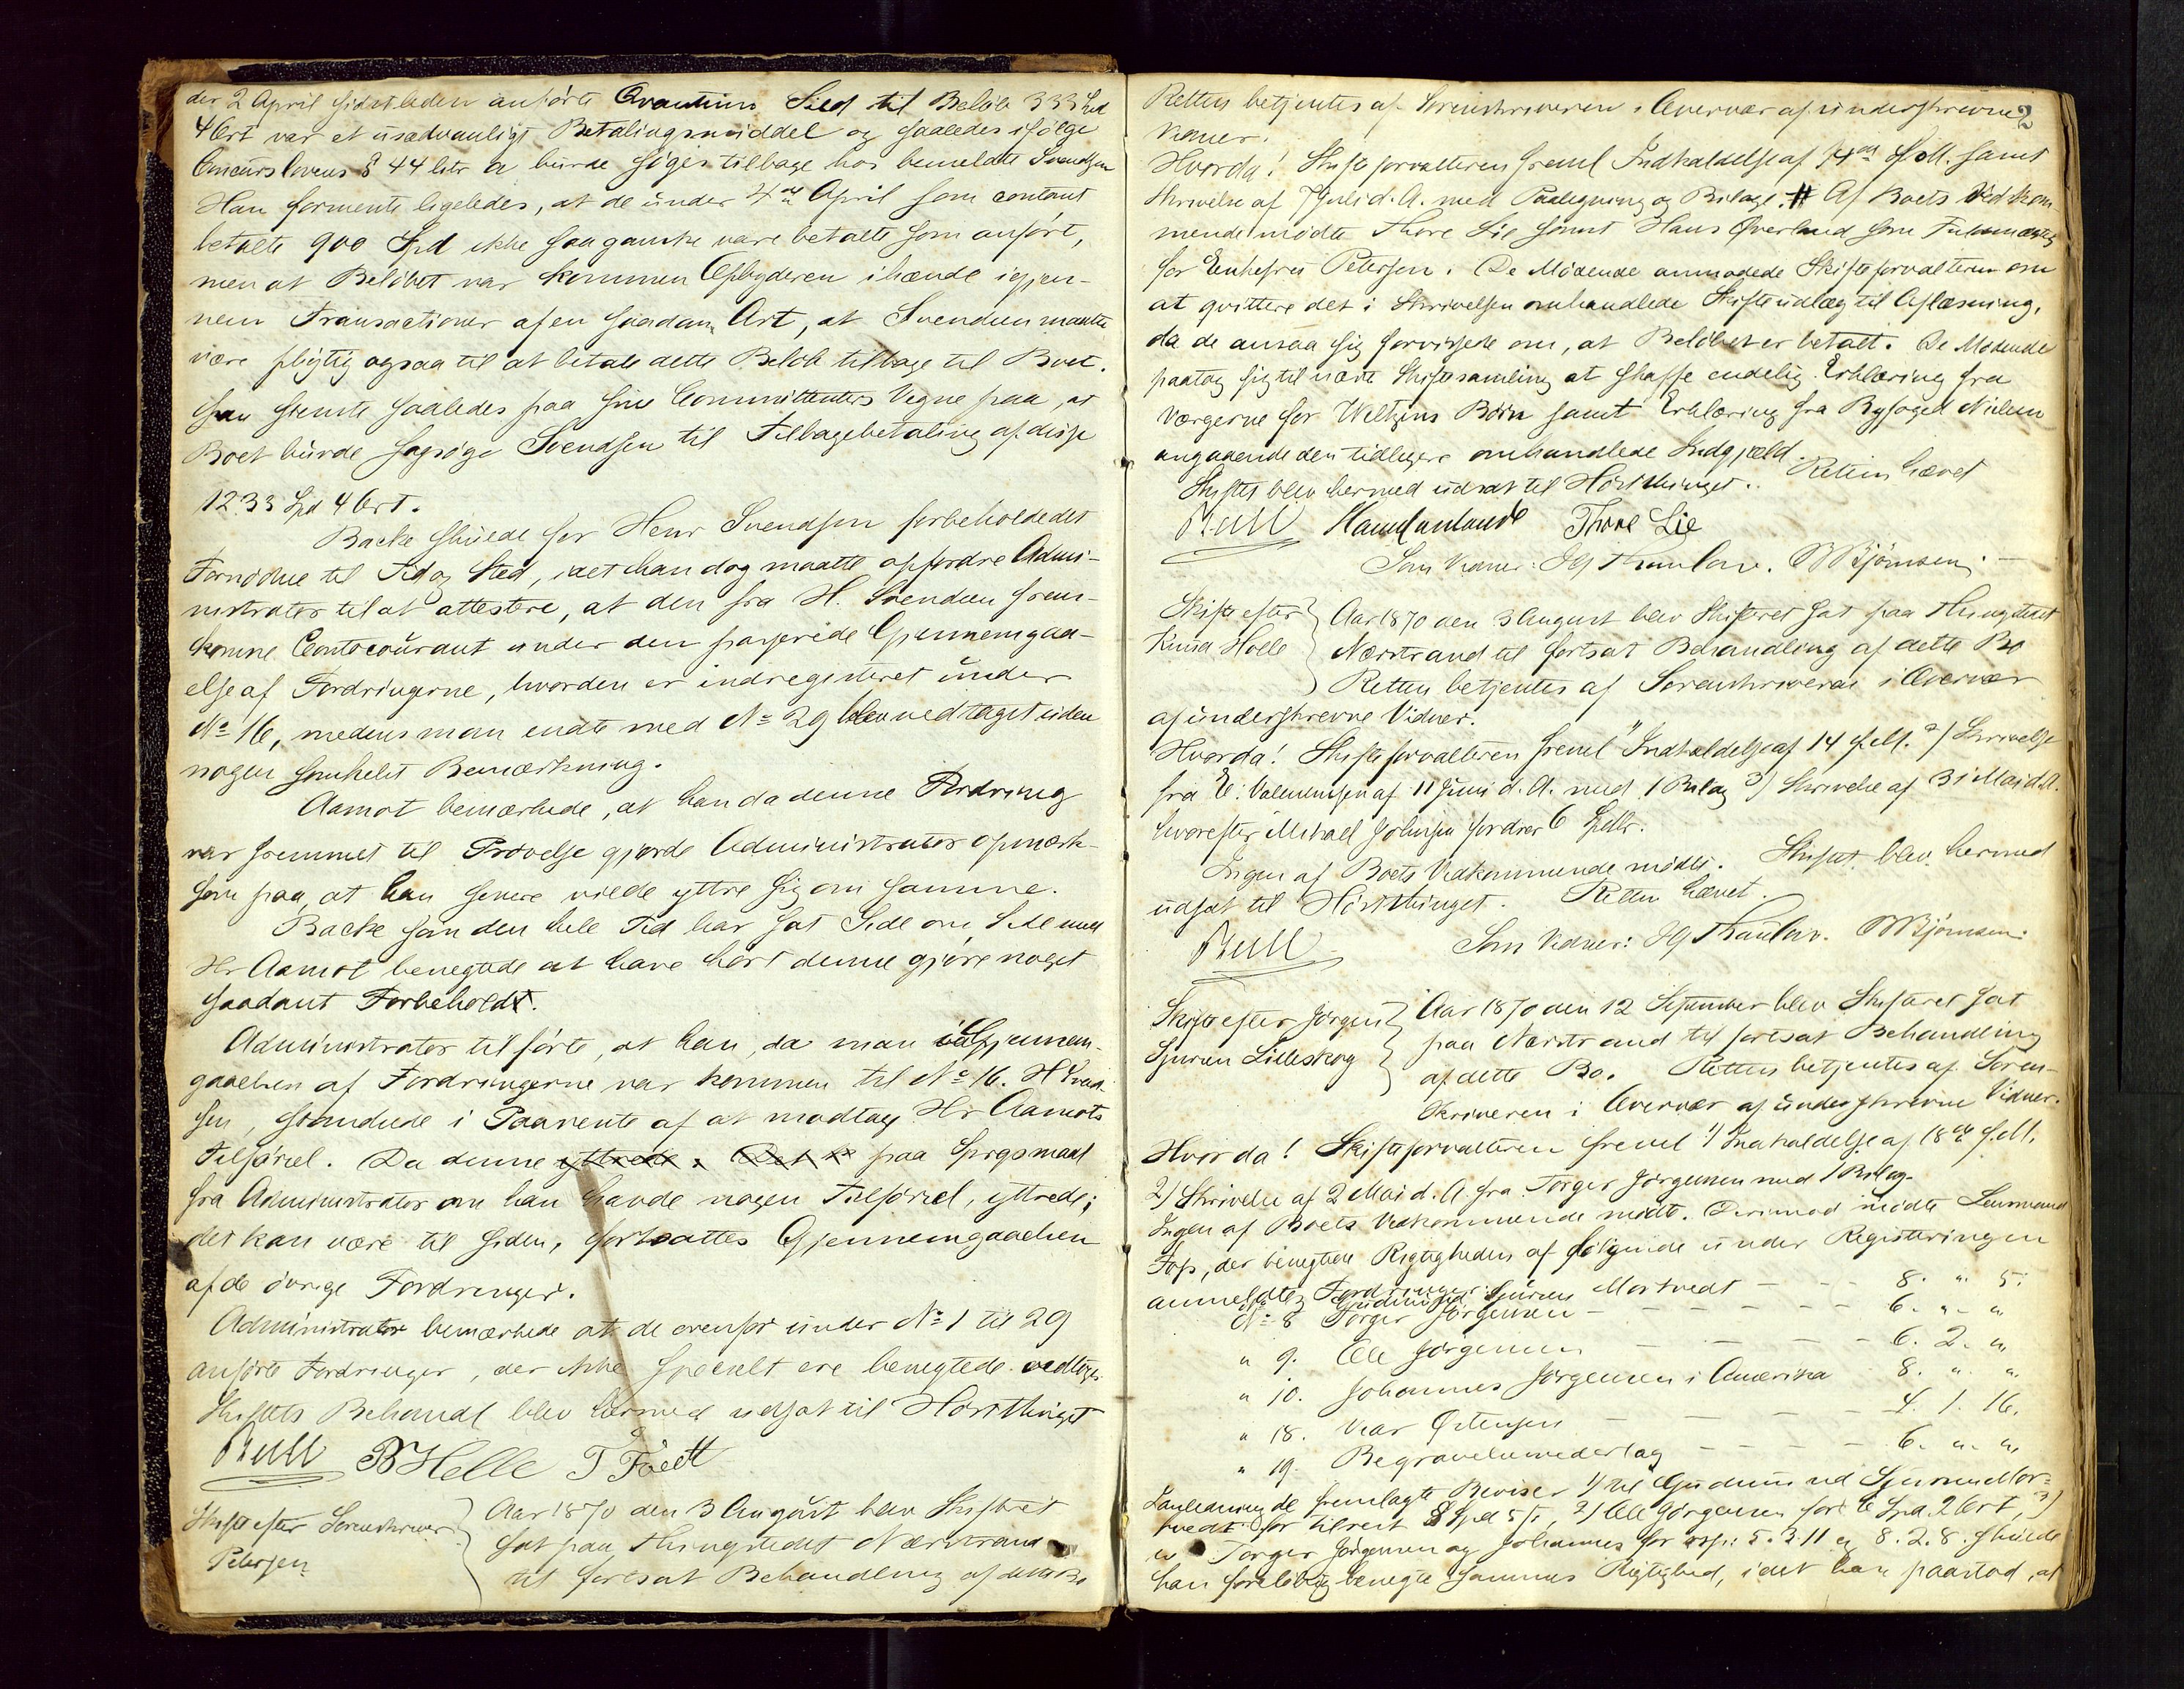 der 2 April sidstleden anførte Qvantum Sild til Beløb 333 Spd
4 Ort var et usædvanligt Betalingsmiddel og saaledes ifølge
Concurslovens § 44 litr a burde søges tilbage hos bemeldte Svendsen
Han formente ligeledes, at de under 4de April som contant
betalte 900 Spd ikke saa ganske vare betalte som anført,
men at Beløbet var kommen Opbyderen ihænde igjen-
nem Transactioner af en saadan Art, at Svendsen maatte
være pligtig ogsaa til at betale dette Beløb tilbage til Boet.
Han stemte saaledes paa sine Committenters Vegne paa, at
Boet burde sagsøge Svendsen til Tilbagebetaling af disse
1233 Spd 4 Ort.
Backe skulde for Henr Svendsen forbeholde det
Fornødne til Tid og Sted, idet han dog maatte opfordre Admi-
nistrator til at attestere, at den fra H. Svendsen frem-
komne Contocourant under den passerede Gjennemgaa-
else af Fordringerne, hvorden er indregisteret under
No 16, medens man endte med No 29 blev vedtaget uden
nogen somhelst Bemærkning.
Aamot bemærkede, at han da denne Fordring
var fremmet til Prøvelse gjorde Administrator opmærk-
som paa, at han senere vilde yttre sig om samme.
Backe som den hele Tid har sat Side om Side med
Hr Aamot benegtede at have hørt denne gjøre noget
saadant Forbeholdt.
Administrator tilførte, at han, da man i Gjennem-
gaaelsen af Fordringerne var kommen til No 16. H Svend-
sen, standsede i Paavente af at modtage Hr Aamots
Tilførsel. Da denne yttrede, Det k paa Spørgsmaal
fra Administrator om han havde nogen Tilførsel, yttrede;
det kan være til siden, fortsattes Gjennemgaaelsen
af de øvrige Fordringer.
Administrator bemærkede at de ovenfor under No 1 til 29
anførte Fordringer, der ikke specielt ere benegtede vedtoges
Skiftets Behandl blev hermed udsat til Høstthinget
Bull B Helle T Tvedt
Skifte efter Sorenskriver
Petersen
Aar 1870 den 3 August blev Skifteret
sat paa Thingstedet Nærstrand
til fortsat Behandling af dette Bo
2
Retten betjentes af Sorenskriveren i Overvær af underskrevne
Vidner.
Hvorda! Skifteforvalteren fremI Indkaldelse af 14de f. M. samt
Skrivelse af 7 Juli d. A. med Paategning og Bilage. # Af Boets Vedkom
mende mødte Thore Lie samt Hans Øverland som Fuldmægtig
for Enkefru Petersen. De Mødende anmodede Skifteforvalteren om
at qvittere det i Skrivelsen omhandlede Skifteudlæg til Aflæsning,
da de ansaa sig forvissede om, at Beløbet er betalt. De Mødende
paatog sig til næste Skiftesamling at skaffe endelig Erklæring fra
Værgerne for Weltzins Børn samt Erklæring fra Byfoged Nielsen
angaaende den tidligere omhandlede Indgjæld.
Skiftet blev hermed udsat til Høstthinget. Retten hævet
Bull Thore Lie
Som Vidner: B Bjørnsen.
Skifte efter
Knud Holle
Aar 1870 den 3 August blev Skifteret sat paa Thingstedet
Nærstrand til fortsat Behandling af dette Bo
Retten betjentes af Sorenskriveren i Overvær
af underskrevne Vidner.
Hvorda! Skifteforvalteren fremI 1) Indkaldelse af 14 f. M. 2) Skrivelse
fra E. Valentinsen af 11 Juni d. A. med 1 Bilag 3) Skrivelse af 31 Mai d. A.
hvorefter Mikael Johnsen fordrer 6 Spdlr.
Ingen af Boets Vedkommende mødte. Skiftet blev hermed
udsat til Høstthinget. Retten hævet.
Bull
Som Vidner: B Bjørnsen
Skifte efter Jørgen
Sjursen Lilleskog
Aar 1870 den 12 September blev Skifteret sat
paa Nærstrand til fortsat Behandling
af dette Bo. Retten betjentes af Soren-
skriveren i Overvær af underskrevne Vidner.
Hvorda! Skifteforvalteren fremI 1) Indkaldelse af 18de f. M.
2) Skrivelse af 2 Mai d. A. fra Torger Jørgensen med 1 Bilag.
Ingen af Boets Vedkommende mødte. Derimod mødte Lensmand
Foss, der benegtede Rigtigheden af følgende under Registeringen
anmeldte Fordringer: Gudmund Sjursen Mortvedt — 8. " 5.
No 8 Torger Jørgensen — 6. " "
" 9. Ole Jørgensen — 6. 2. "
" 10. Johannes Jørgensen i Amerika 8. " "
" 18. Ivar Østensen — 4. 1. 16.
" 19. Begravelsesvederlag — 6. " "
I Anledning de fremlagte Beviser 1) til Gudmund Sjursen Mor-
tvedt for tilrest 8 Spd 5 s, 2) Ole Jørgensen for 6 Spd 2 Ort, 3)
Torger Jørgensen og Johannes for resp: 5. 3. 11 og 8. 2. 8. skulde
han foreløbig benegte sammes Rigtighed, idet han paastod, at